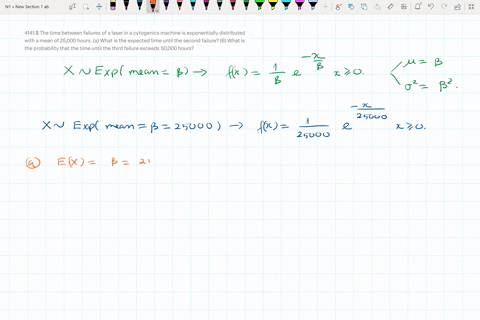 N1 » New Section 1 ab
4141.8 The time between failures of a laser in a cytogenics machine is exponentially distributed
with a mean of 25,000 hours. (a) What is the expected time until the second failure? (b) What is
the probability that the time until the third failure exceeds 50,000 hours?
X ~ Exp( mean = β) → f(x) = 1/β e^(-x/β) x ≥ 0. μ = β
σ² = β².
X ~ Exp( mean = β = 25000 ) → f(x) = 1/25000 e^(-x/25000) x ≥ 0.
(a) E(X) = β = 2